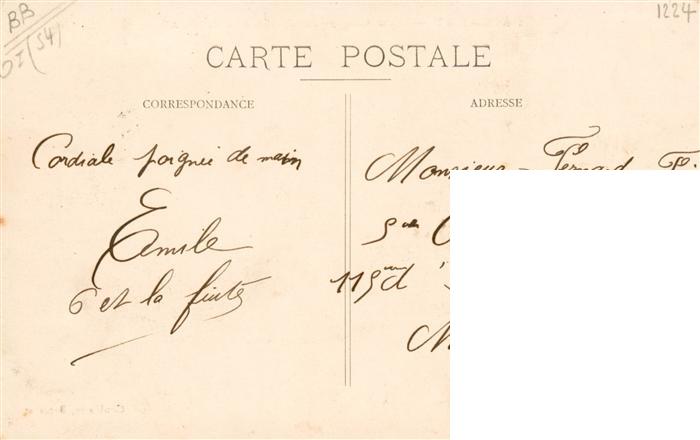 BB
(54)
1224
CARTE POSTALE
CORRESPONDANCE
ADRESSE
Cordiale poignée de main
Emile
6 et la fuite
Monsieur Fernand
5
115